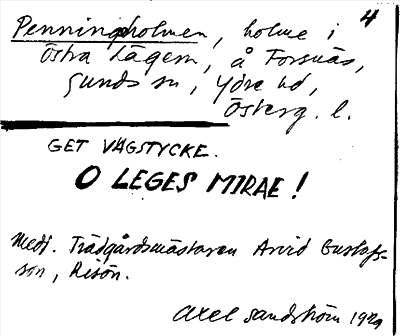 4
Penningholmen, holme i
Östra Lägern, å Forsnäs,
Sunds sn, Ydre hd,
Österg. l.
GET VÄGSTYCKE.
O LEGES MIRAE!
Medd. Trädgårdsmästaren Arvid Gustafs-
son, Risön.
Axel Sandström 1929